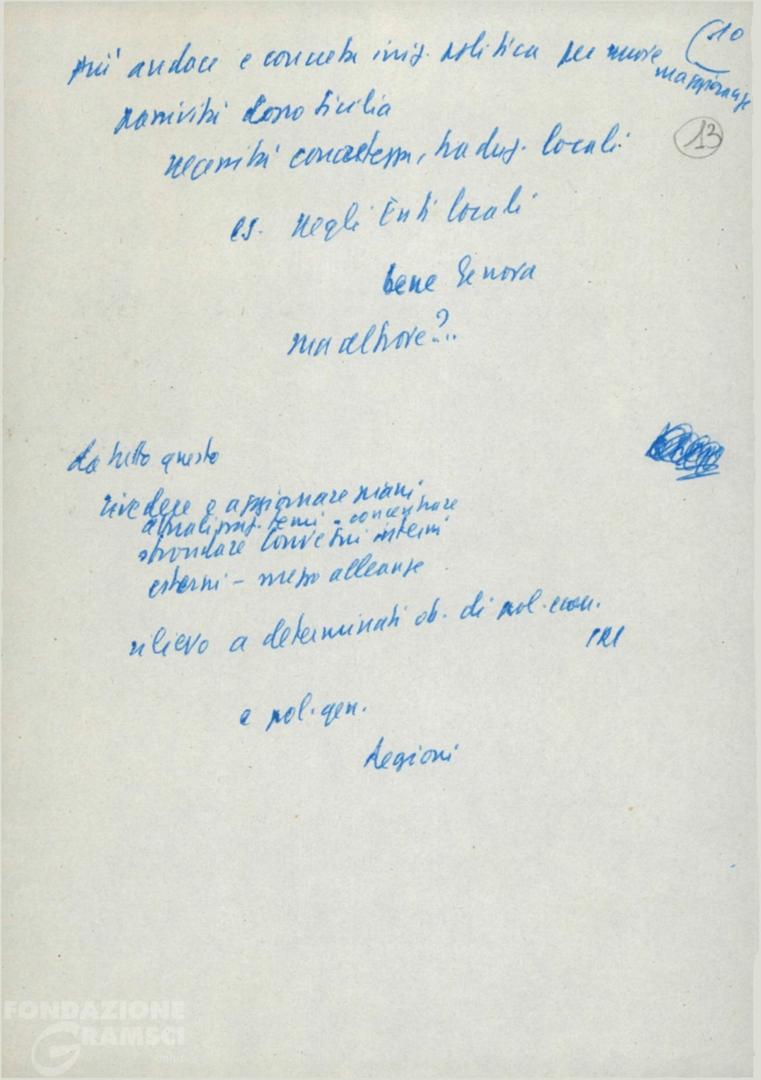 10
più audace e concreta iniz. politica per nuove
maggioranze
13
passività dopo Sicilia
necessità concretezza, traduz. locali
es. negli Enti locali
bene Genova
ma altrove?..
da tutto questo
rivedere e aggiornare piani
attualizz. temi - concentrare
stroncare contrasti interni
esterni - alleanze
rilievo a determinati ob. di pol. econ.
IRI
e pol. gen.
Regioni
FONDAZIONE
GRAMSCI